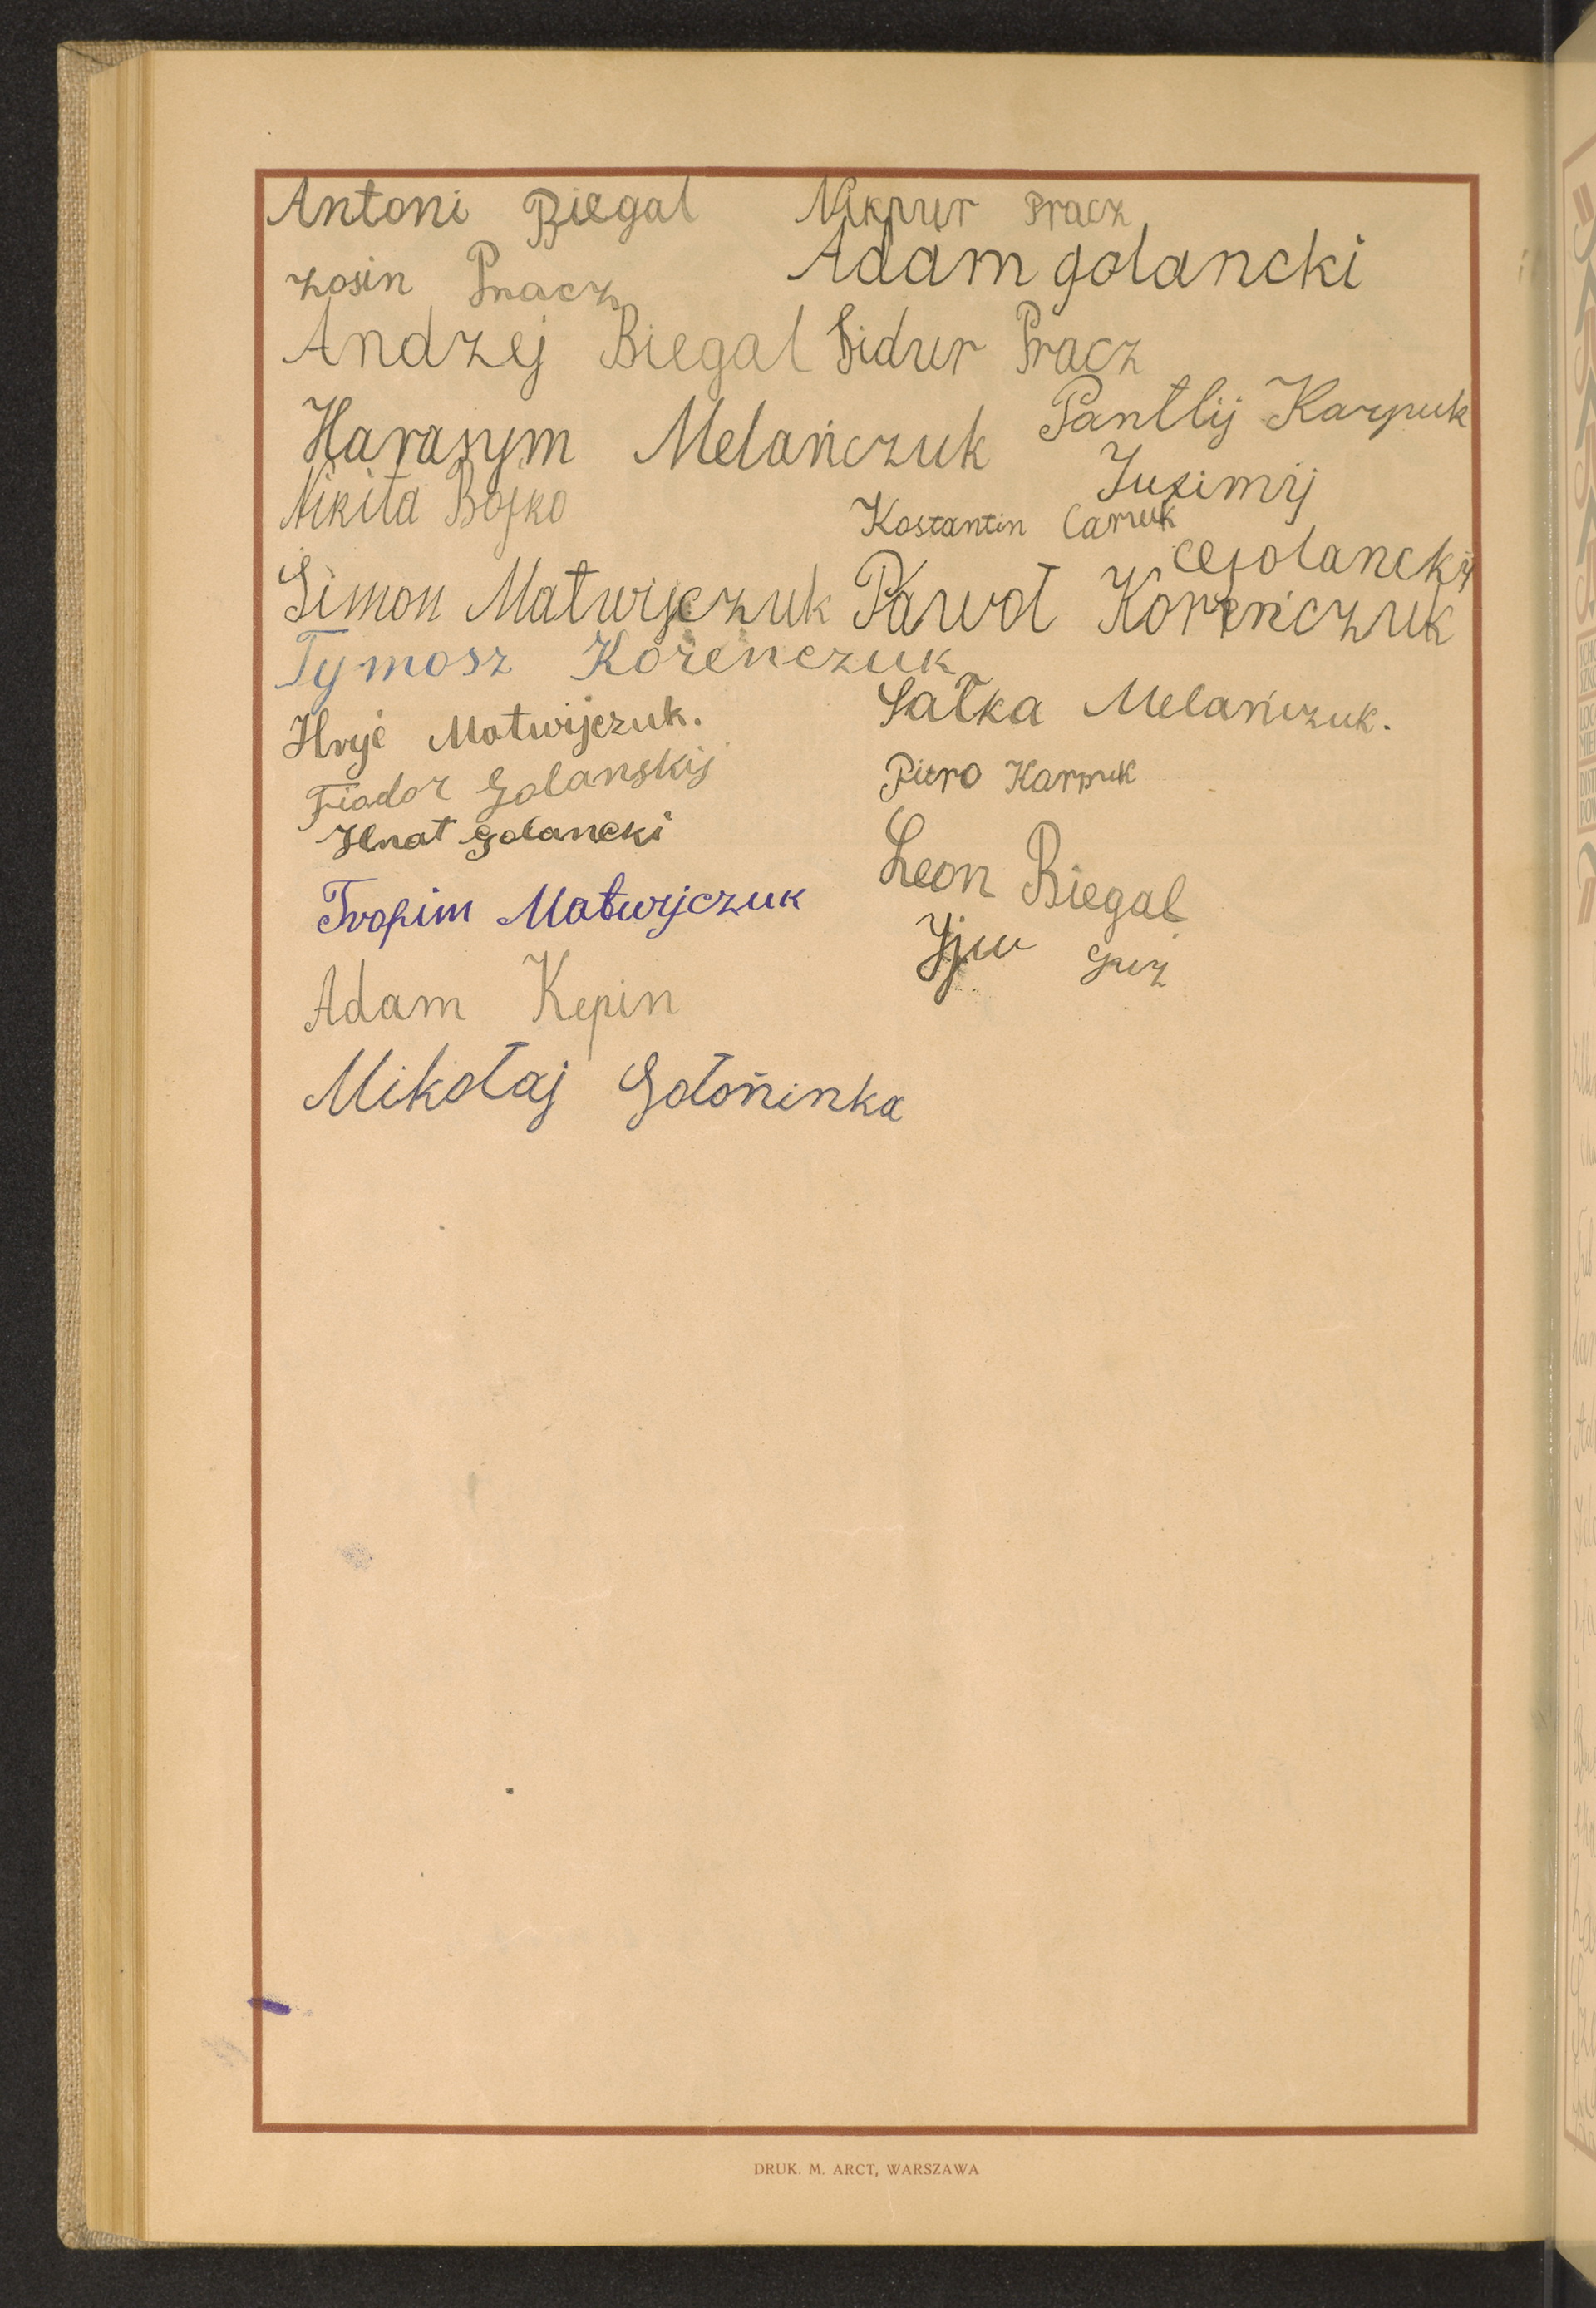 Antoni Biegal
Nikpur Pracz
zosin Pracz
Adam golancki
Andzej Biegal
Sidur Pracz
Harasym Melańczuk
Pantlij Karpuk
Nikita Bojko
Juximij
Golancki
Kostantin Caruk
Simon Matwijczuk
Pawoł Koreńczuk
Tymosz Korenczuk
Sałka Melańczuk.
Matwijczuk.
Fiodor Golanskij
Pitro Karpuk
Hnat Golancki
Leon Biegal
Trofim Matwijczuk
Adam Kepin
Mikołaj Gołoninka
DRUK. M. ARCT, WARSZAWA